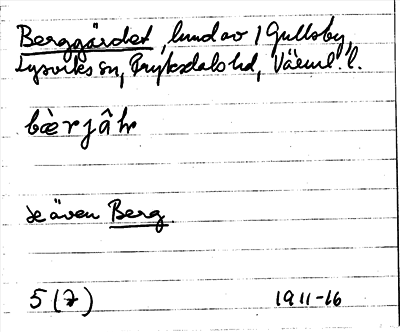 Berggärdet, lund av 1 Gullsby,
Lysviks sn, Fryksdals hd, Värml. l.
bæ̀rjâr
se även Berg.
5 (7) 1911-16